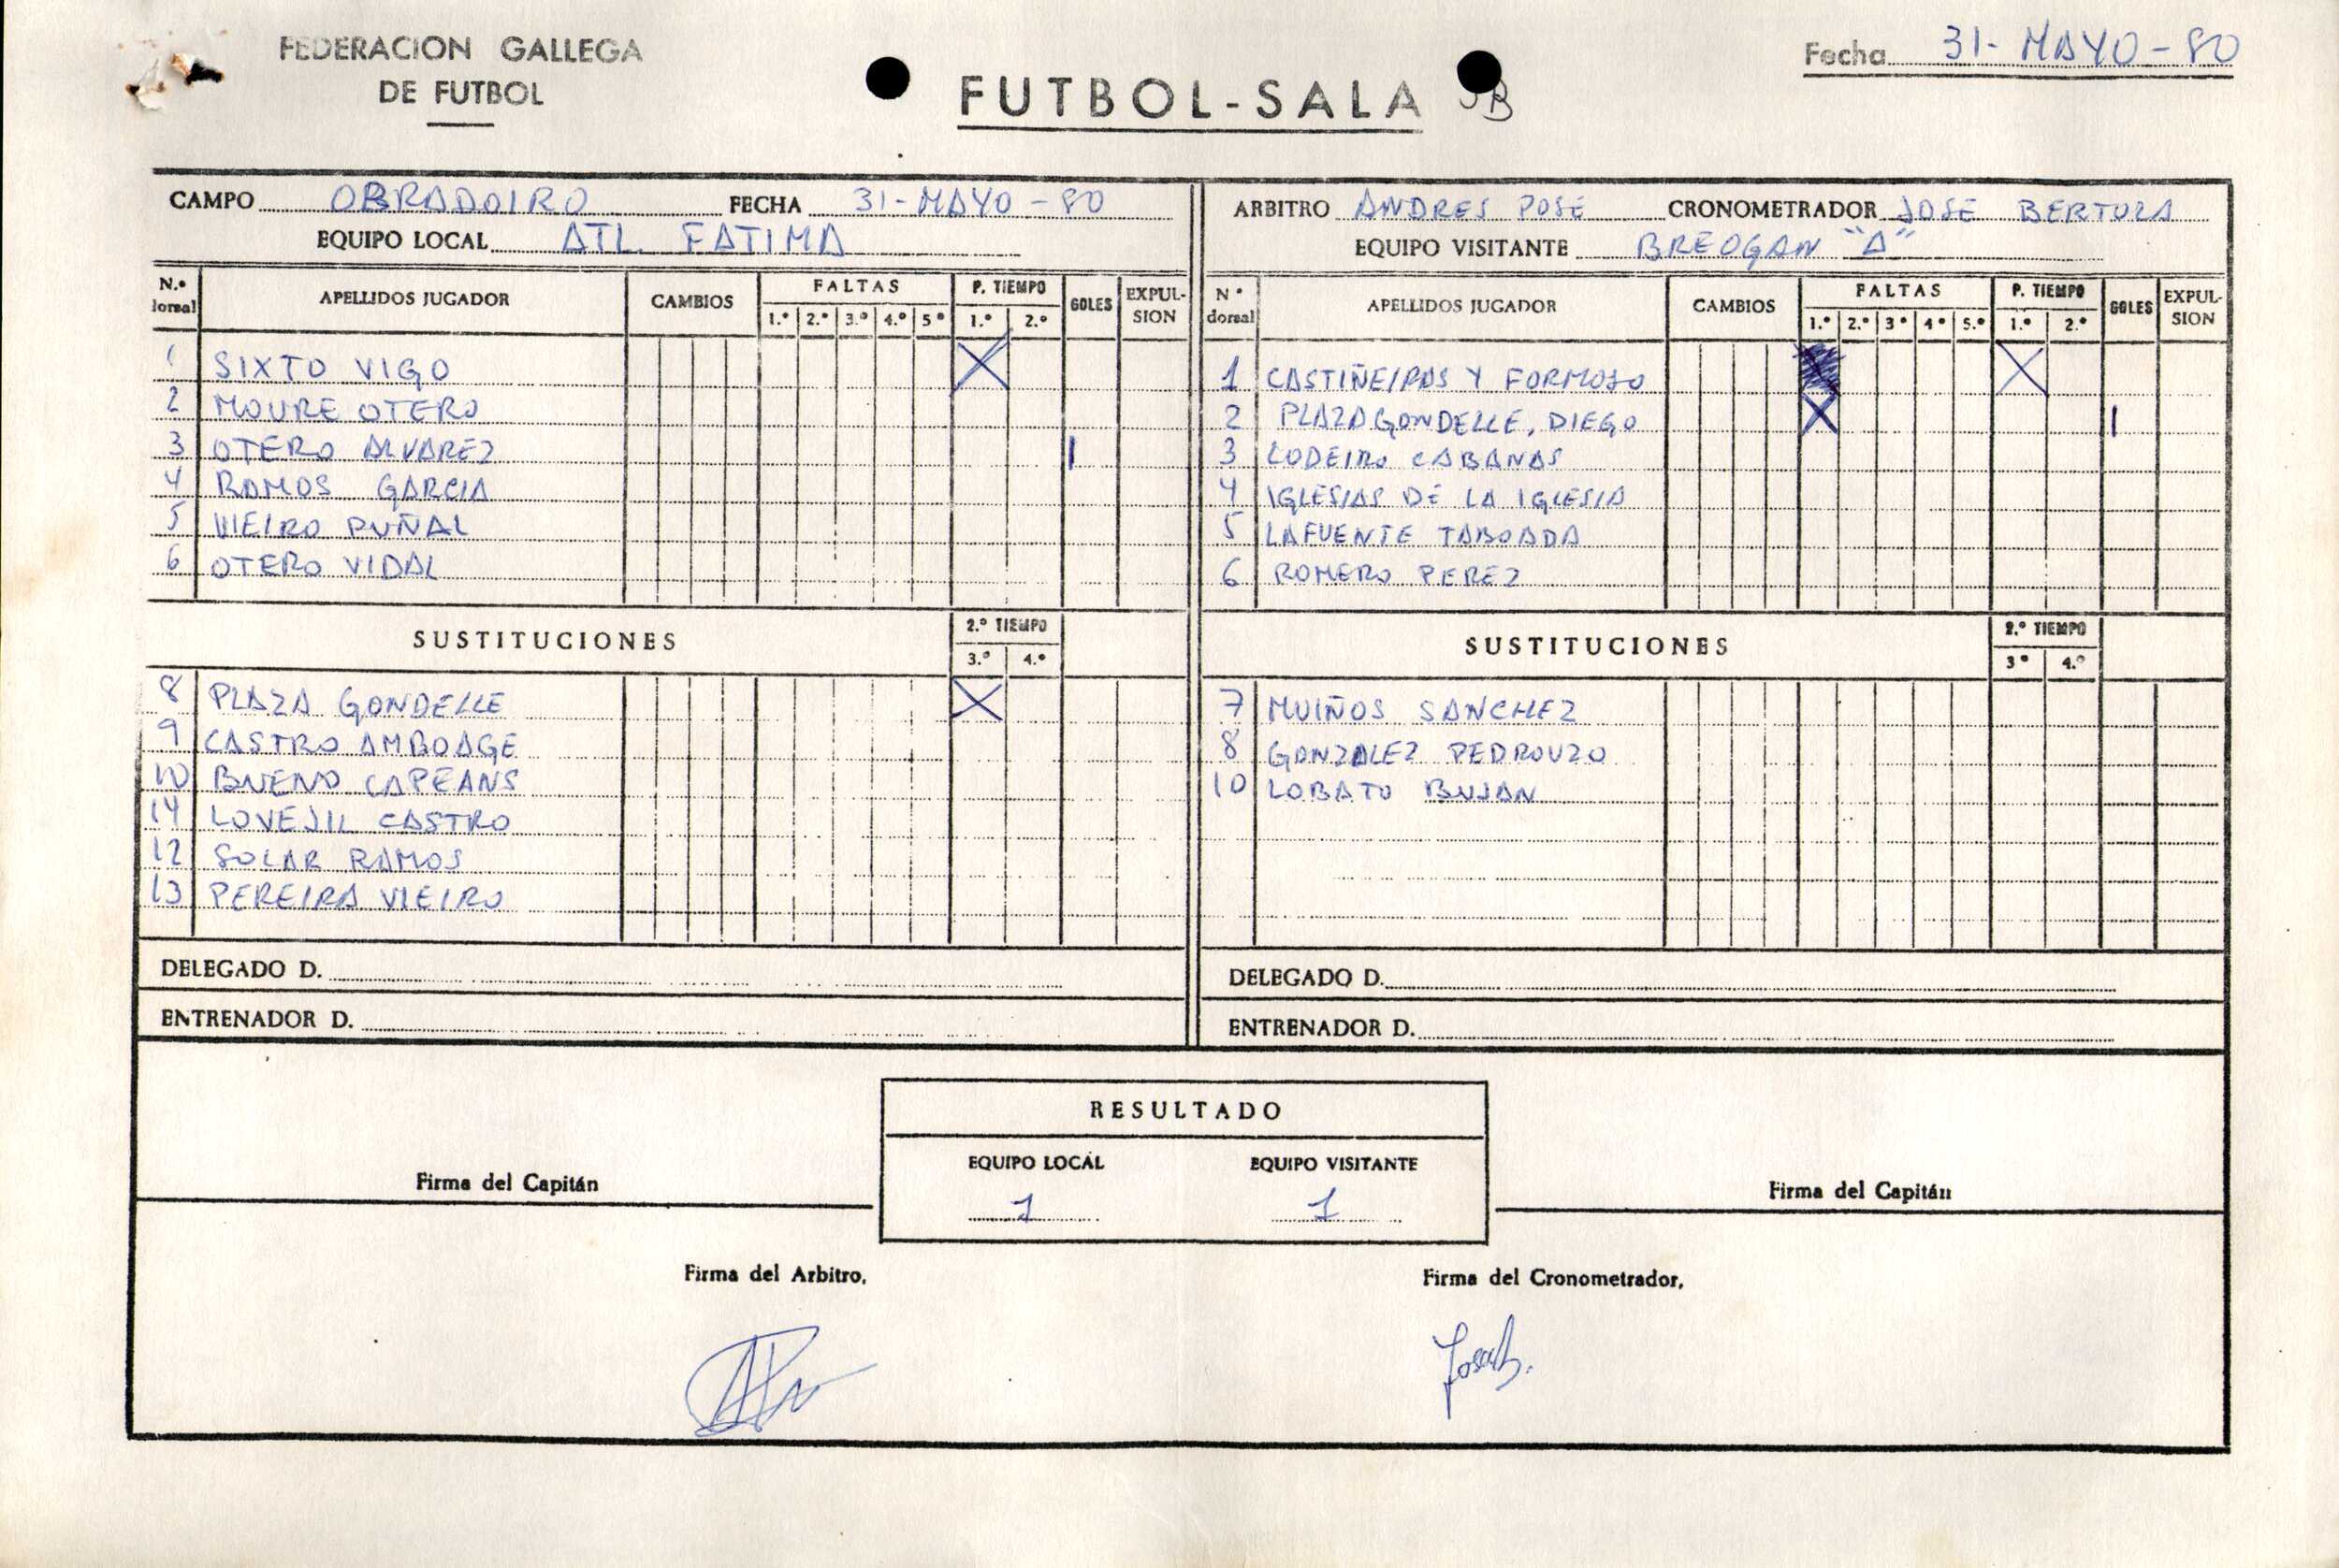 FEDERACION GALLEGA
DE FUTBOL
FUTBOL-SALA
Fecha 31-MAYO-80
CAMPO OBRADOIRO FECHA 31-MAYO-80
EQUIPO LOCAL ATL. FATIMA
N.º dorsal APELLIDOS JUGADOR CAMBIOS FALTAS 1.º 2.º 3.º 4.º 5º P. TIEMPO 1.º 2.º GOLES EXPULSION
1 SIXTO VIGO X
2 MOURE OTERO
3 OTERO ALVAREZ I
4 RAMOS GARCIA
5 VIEIRO PUÑAL
6 OTERO VIDAL
SUSTITUCIONES 2.º TIEMPO 3.º 4.º
8 PLAZA GONDELLE X
9 CASTRO AMBOAGE
10 BUENO CAPEANS
14 CASTRO
12 SOLAR RAMOS
13 PEREIRA VIEIRO
DELEGADO D.
ENTRENADOR D.
ARBITRO ANDRES POSE CRONOMETRADOR JOSE BERTOLA
EQUIPO VISITANTE BREOGAN "A"
Nº dorsal APELLIDOS JUGADOR CAMBIOS FALTAS 1.º 2.º 3º 4º 5.º P. TIEMPO 1.º 2.º GOLES EXPULSION
1 CASTIÑEIRAS Y FORMOSO X
2 PLAZA GONDELLE, DIEGO X I
3 LODEIRO CABANAS
4 IGLESIAS DE LA IGLESIA
5 LAFUENTE TABOADA
6 ROMERO PEREZ
SUSTITUCIONES 2.º TIEMPO 3º 4.º
7 MUIÑOS SANCHEZ
8 GONZALEZ PEDROUZO
10 LOBATO BUJAN
DELEGADO D.
ENTRENADOR D.
RESULTADO
EQUIPO LOCAL EQUIPO VISITANTE
1 1
Firma del Capitán
Firma del Capitán
Firma del Arbitro,
Firma del Cronometrador,